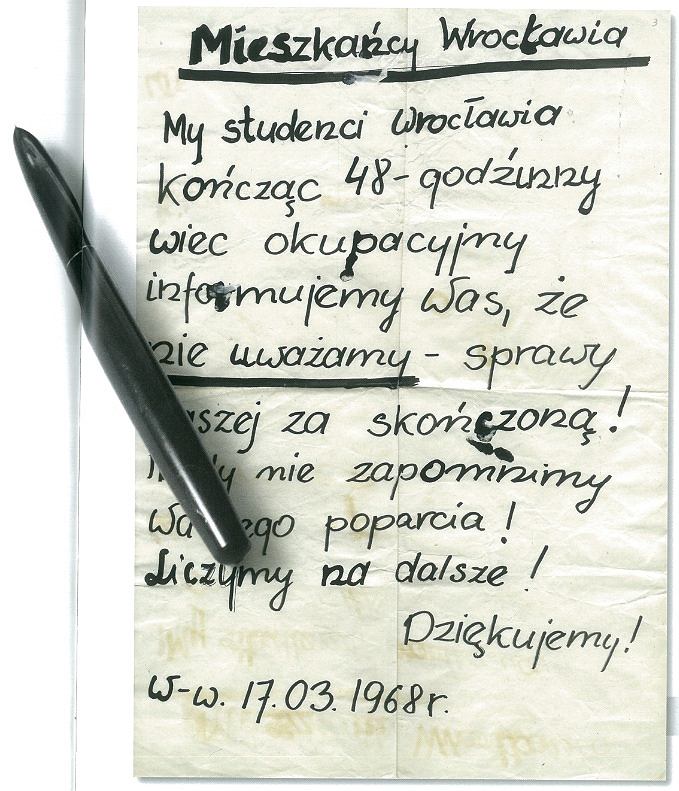 Mieszkańcy Wrocławia
My studenci Wrocławia
kończąc 48-godźinny
wiec okupacyjny
informujemy Was, że
nie uważamy - sprawy
naszej za skończoną!
Nigdy nie zapomnimy
Waszego poparcia!
Liczymy na dalsze!
Dziękujemy!
W-w. 17.03.1968r.
3